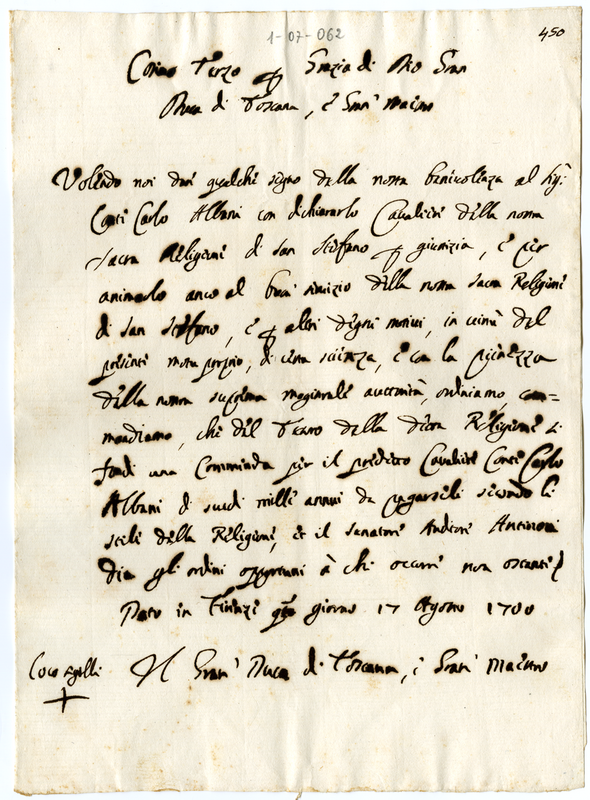 1-07-062
450
Cosimo Terzo p Grazia di Dio Gran
Duca di Toscana, e Gran Maestro
Volendo noi dar qualche segno della nostra benivolenza al Sig:
Conte Carlo Albani con dichiararlo Cavaliere della nostra
Sacra Religione di San Stefano p giustizia, e per
animarlo anco al buon servizio della nostra Sacra Religione
di San Stefano, e p altri degni motivi, in virtù del
presente motu proprio, di certa scienza, e con la pienezza
della nostra suprema magistrale autorità, ordiniamo, com=
mandiamo, che dal Tesoro della detta Religione si
fondi una Commenda per il predetto Cavaliere Conte Carlo
Albani di scudi mille annui da pagarseli secondo li
stili della Religione, et il Senatore Auditore Antinori
dia gli ordini opportuni à chi occorre non ostante
Dato in Firenze qto giorno 17 Agosto 1700
Il Gran Duca di Toscana, e Gran Maestro